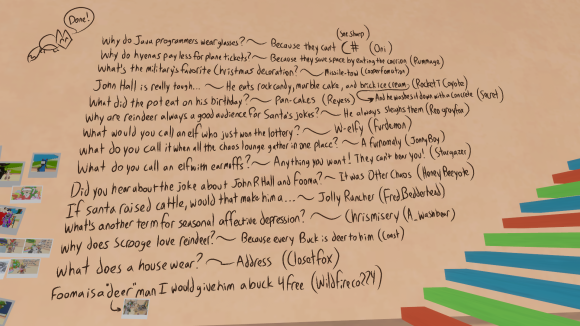 Done!
(see sharp)
Why do Java programmers wear glasses? ~ Because they can't C# (Oni)
Why do hyenas pay less for plane tickets? ~ Because they save space by eating the carrion (Rummage)
What's the military's favorite Christmas decoration? ~ Missile-tow (Casperfomation)
John Hall is really tough... ~ He eats rock candy, marble cake, and brick ice cream, (RocketT Coyote)
What did the pot eat on his birthday? ~ Pan-cakes (Reyess) And he washes it down with a concrete (Secret)
Why are reindeer always a good audience for Santa's jokes? ~ He always sleighs them (Reo grayfox)
What would you call an elf who just won the lottery? ~ W-elfy (Furdemon)
What do you call it when all the chaos lounge gather in one place? ~ A furnomaly (JonnyBoy)
What do you call an elf with earmuffs? ~ Anything you want! They can't hear you! (Stargazer)
Did you hear about the joke about John R Hall and Fooma? ~ It was Otter Chaos (Honey Beryote)
If santa raised cattle, would that make him a... ~ Jolly Rancher (Fred Bedderhead)
What's another term for seasonal affective depression? ~ Chrismisery (A_washbear)
Why does Scrooge love reindeer? ~ Because every Buck is deer to him (Coast)
What does a house wear? ~ Address (Closetfox)
Fooma is a "deer" man I would give him a buck 4 free (Wildfireco224)